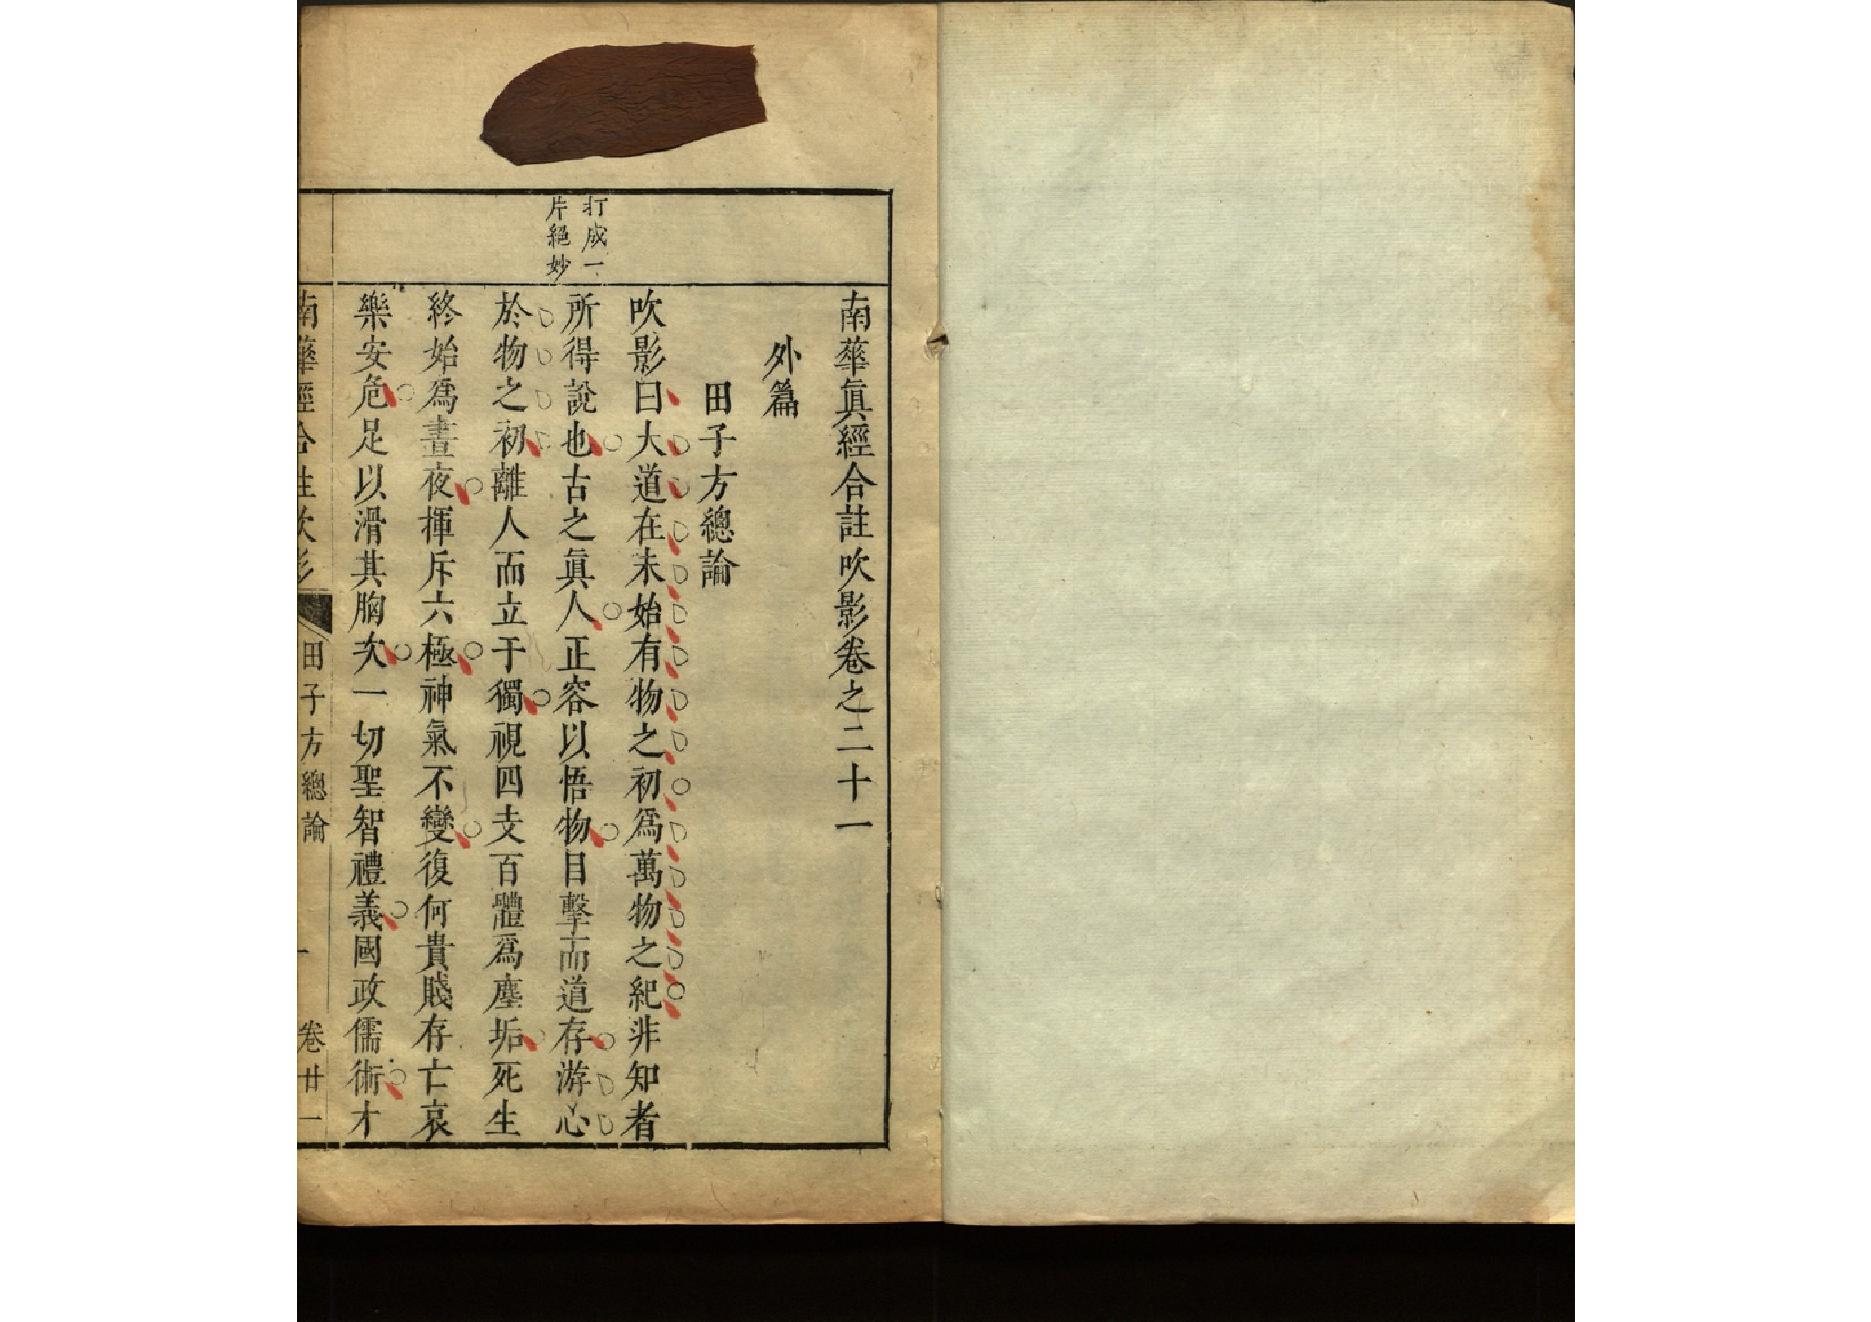 南華眞經合註吹影卷之二十一
外篇
田子方總論
打成一
片絕妙
吹影曰大道在未始有物之初爲萬物之紀非知者
所得說也古之眞人正容以悟物目擊而道存游心
於物之初離人而立于獨視四支百體爲塵垢死生
終始爲晝夜揮斥六極神氣不變復何貴賤存亡哀
樂安危足以滑其胸次一切聖智禮義國政儒術才
南華經合註吹影
田子方總論
一
卷廿一